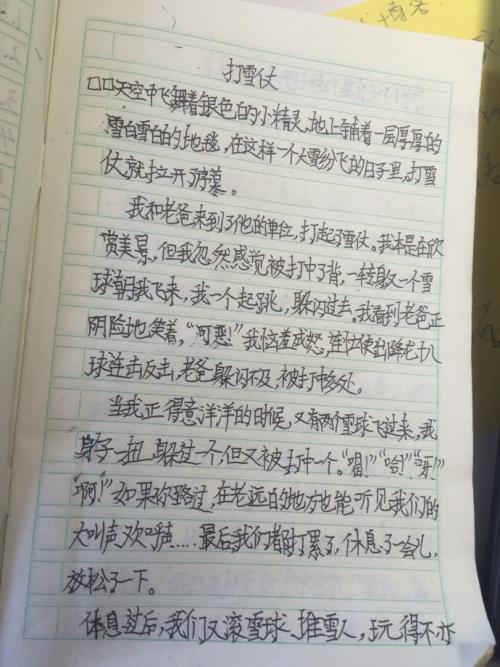 博客
打雪仗
口口天空中飞舞着银色的小精灵,地上铺着一层厚厚的
雪白雪白的地毯,在这样一个大雪纷飞的日子里,打雪
仗就拉开了序幕。
我和老爸来到了他的单位,打起了雪仗。我本是在欣
赏美景,但我忽然感觉被打中了背,一转身又一个雪
球朝我飞来,我一个起跳,躲闪过去。我看到老爸正
阴险地笑着,“可恶!”我恼羞成怒,连忙使出降龙十八
球连击反击,老爸躲闪不及,被打中多处。
当我正得意洋洋的时候,又有两个雪球飞过来,我
身子一扭,躲过一个,但又被打中一个。“唱!”“哈!”“呀!”
“啊!”如果你路过,在老远的地方也能听见我们的
大叫声欢呼声……最后我们都打累了,休息了一会儿,
放松了一下。
休息过后,我们又滚雪球、堆雪人,玩得不亦